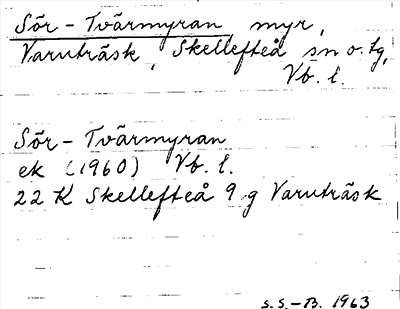 Sör-Tvärmyran myr,
Varuträsk, Skellefteå sn o. tg,
Vb. l.
Sör-Tvärmyran
ek (1960) Vb. l.
22 K Skellefteå 9 g Varuträsk
S.S.-B. 1963